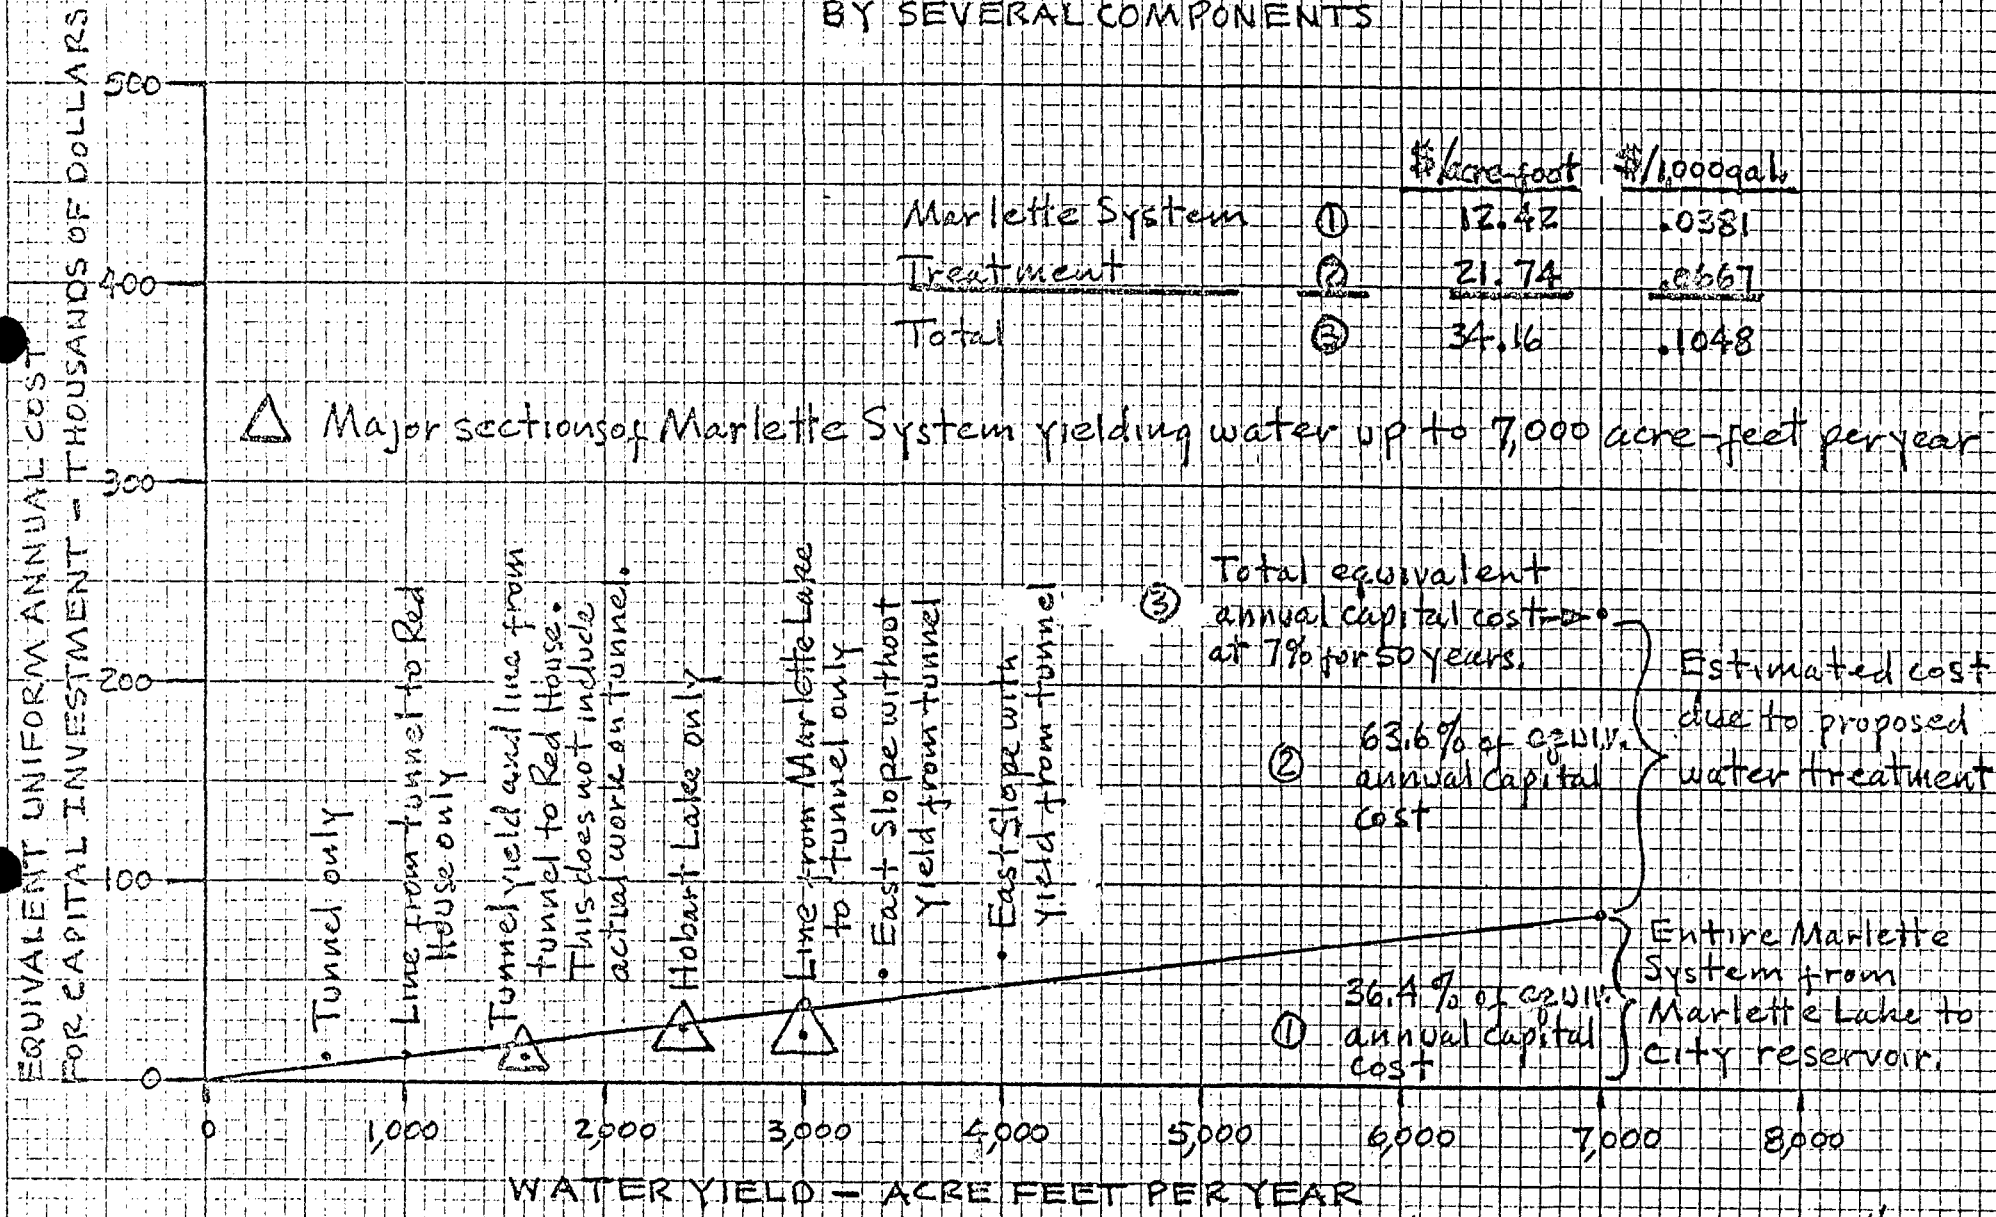 BY SEVERAL COMPONENTS
EQUIVALENT UNIFORM ANNUAL COST
FOR CAPITAL INVESTMENT - THOUSANDS OF DOLLARS
500
400
300
200
100
0
$/acre-foot $/1,000gal.
Marlette System ① 12.42 .0381
Treatment ② 21.74 .0667
Total ③ 34.16 .1048
△ Major sections of Marlette System yielding water up to 7,000 acre-feet per year
Tunnel only
Line from tunnel to Red
House only
Tunnel yield and line from
tunnel to Red House.
This does not include
actual work on tunnel.
Hobart Lake only
Line from Marlette Lake
to tunnel only
East Slope without
Yield from tunnel
East Slope with
yield from tunnel
③ Total equivalent
annual capital cost
at 7% for 50 years.
② 63.6% of equiv.
annual capital
cost
Estimated cost
due to proposed
water treatment
① 36.4% of equiv.
annual capital
cost
Entire Marlette
System from
Marlette Lake to
City reservoir.
0 1,000 2,000 3,000 4,000 5,000 6,000 7,000 8,000
WATER YIELD - ACRE FEET PER YEAR